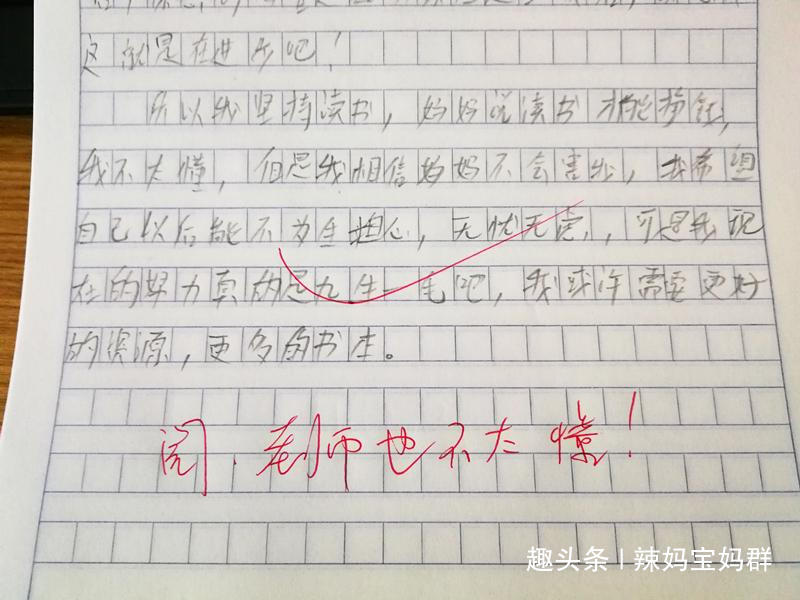 这就是在进步吧！
所以我坚持读书，妈妈说读书才能挣钱，
我不太懂，但是我相信妈妈不会害我，我希望
自己以后能不为生担心，无忧无虑，可是我现
在的努力真的是九牛一毛吧，我或许需要更好
的资源，更多的书本。
阅．老师也不太懂！
趣头条 | 辣妈宝妈群